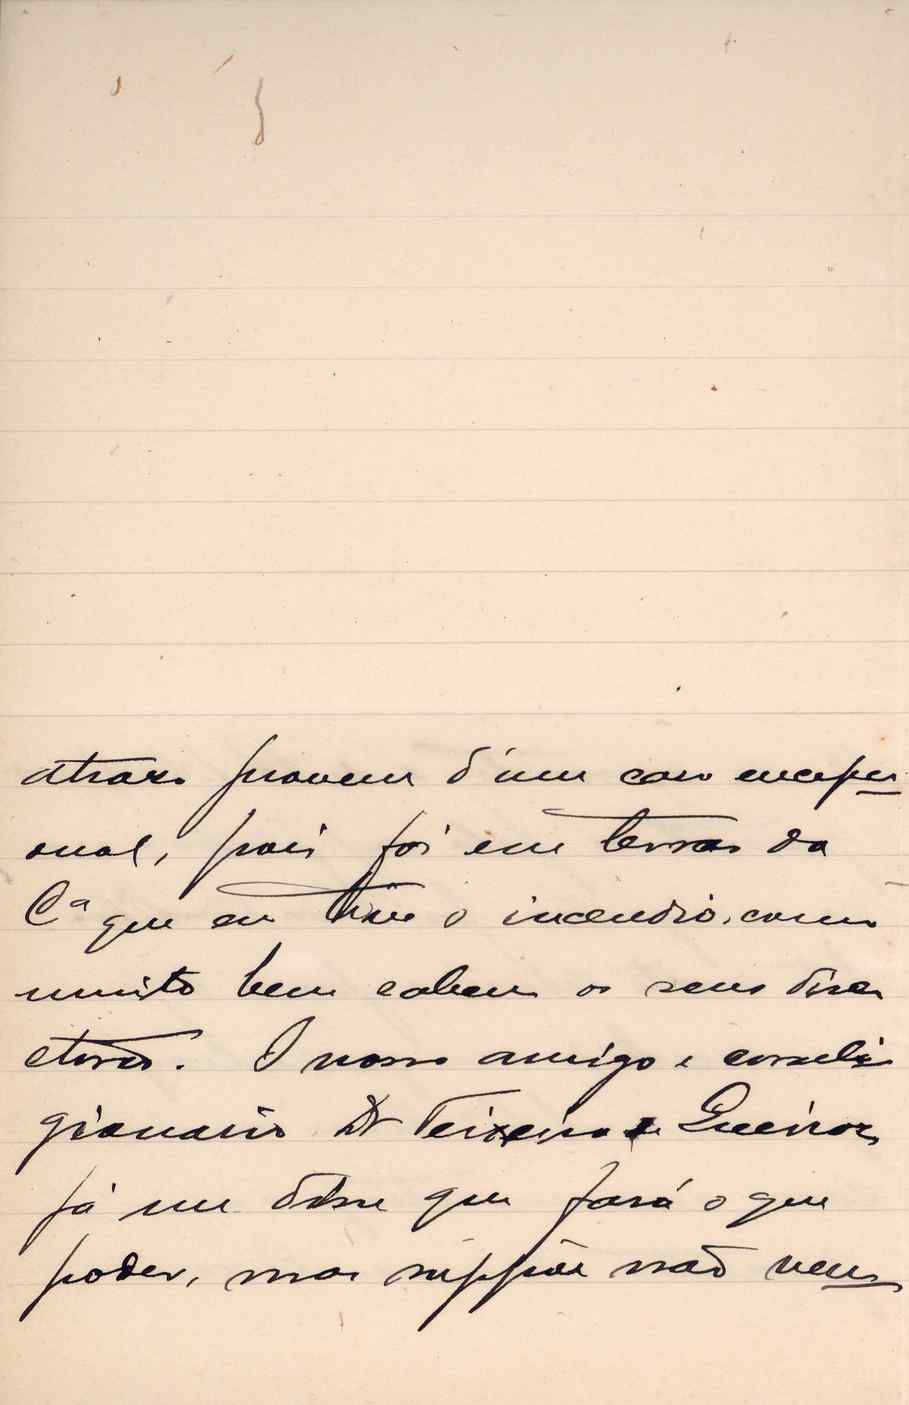 atrazo provem d'um caso excepci
onal, pois foi em terras da
Cª que eu tive o incendio, como
muito bem sabem os seus dire
ctores. O nosso amigo e correli
gionario Dr Teixeira de Queiroz
já me disse que fará o que
poder, mas suppõe não ven